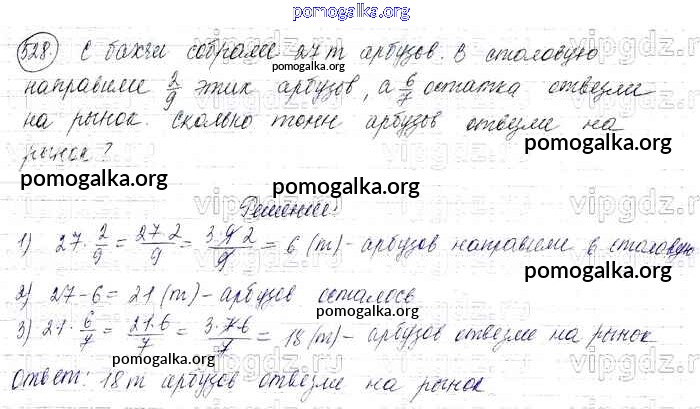 pomogalka.org
528. С бахчи собрали 27 т арбузов. В столовую
направили 2/9 этих арбузов, а 6/7 остатка отвезли
на рынок. Сколько тонн арбузов отвезли на
рынок?
Решение:
1) 27 · 2/9 = 27·2/9 = 3·9·2/9 = 6 (т) - арбузов направили в столовую
2) 27 - 6 = 21 (т) - арбузов осталось
3) 21 · 6/7 = 21·6/7 = 3·7·6/7 = 18 (т) - арбузов отвезли на рынок
Ответ: 18 т арбузов отвезли на рынок.
pomogalka.org
pomogalka.org
pomogalka.org
pomogalka.org
pomogalka.org
pomogalka.org
pomogalka.org
pomogalka.org
vipgdz.ru
vipgdz.ru
vipgdz.ru
vipgdz.ru